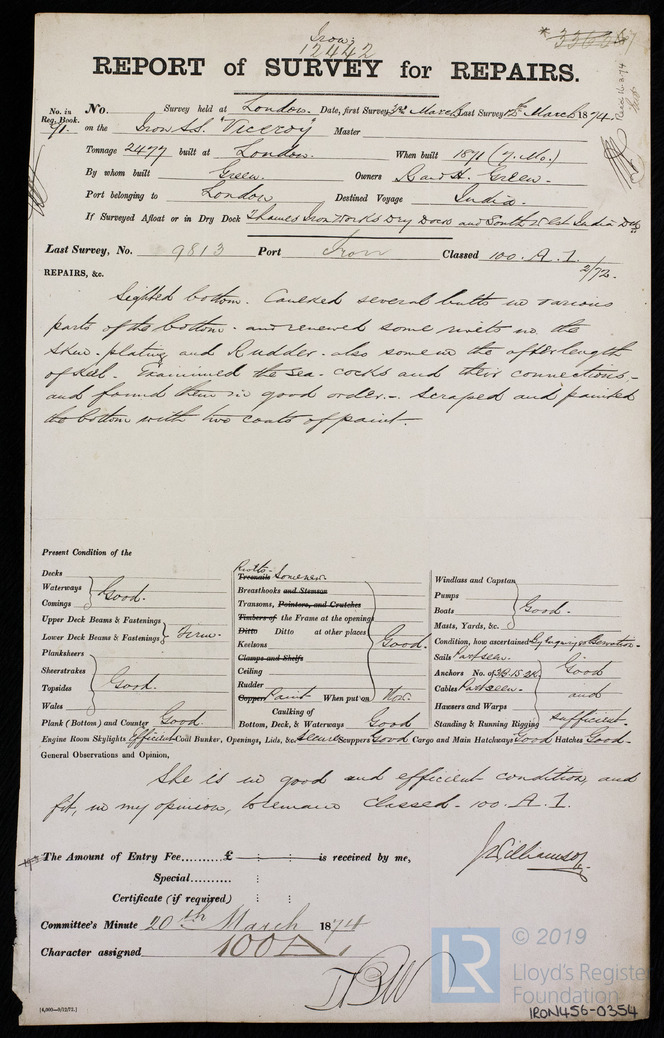 Iron
12442
REPORT of SURVEY for REPAIRS.
Rec 16.3.74
No. in Reg. Book. No. Survey held at London. Date, first Survey 3rd March Last Survey 12th March 1874.
91. on the Iron S.S. "Viceroy" Master
Tonnage 2477 built at London. When built 1871 (7. Mo.)
By whom built Green. Owners R and H. Green.
Port belonging to London Destined Voyage India.
If Surveyed Afloat or in Dry Dock Thames Iron Works Dry Dock and South West India Dk
Last Survey, No. 9813 Port Iron Classed 100. A. 1.
2/72.
REPAIRS, &c.
Sighted bottom. Caulked several butts in various
parts of the bottom. and renewed some rivets in the
skin-plating and Rudder. also some in the after length
of keel. Examined the sea-cocks and their connections,
and found them in good order. Scraped and painted
the bottom with two coats of paint.
Present Condition of the
Decks
Waterways
Comings
Good.
Upper Deck Beams & Fastenings
Lower Deck Beams & Fastenings
Firm.
Planksheers
Sheerstrakes
Topsides
Wales
Good.
Plank (Bottom) and Counter Good.
Rivets
Treenails Some new
Breasthooks and Stemson
Transoms, Pointers, and Crutches
Timbers of the Frame at the openings
Ditto Ditto at other places
Keelsons
Good.
Clamps and Shelfs
Ceiling
Rudder
Copper Paint When put on Now.
Caulking of
Bottom, Deck, & Waterways Good
Windlass and Capstan
Pumps
Boats
Masts, Yards, &c.
Good.
Condition, how ascertained By Enquiry & Observation.
Sails Part seen.
Anchors No. of 3B. 1S. 2K.
Cables Part seen.
Hawsers and Warps
Standing & Running Rigging
Good
and
sufficient.
Engine Room Skylights Efficient Coal Bunker, Openings, Lids, &c. Secure Scuppers Good Cargo and Main Hatchways Good Hatches Good.
General Observations and Opinion,
She is in good and efficient condition, and
fit, in my opinion, to remain Classed - 100. A. 1.
The Amount of Entry Fee.........£ : : is received by me,
J Williamson
Special............ :
Certificate (if required) : :
Committee's Minute 20th March 1874
Character assigned 100 A 1
[4,000—9/12/72.]
LR
© 2019
Lloyd's Register
Foundation
IRON456-0354